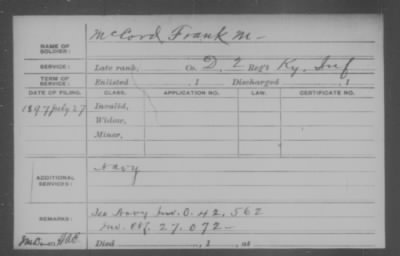 NAME OF SOLDIER: McCord Frank M-
SERVICE: Late rank, Co. D, 2 Reg't Ky. Inf
TERM OF SERVICE: Enlisted , 1 Discharged , 1
DATE OF FILING. CLASS. APPLICATION NO. LAW. CERTIFICATE NO.
1897 July 27 Invalid,
Widow,
Minor,
ADDITIONAL SERVICES: Navy
REMARKS: See Navy Inv. O. 42,562
Inv. Ctf. 27.072-
Died , 1 , at